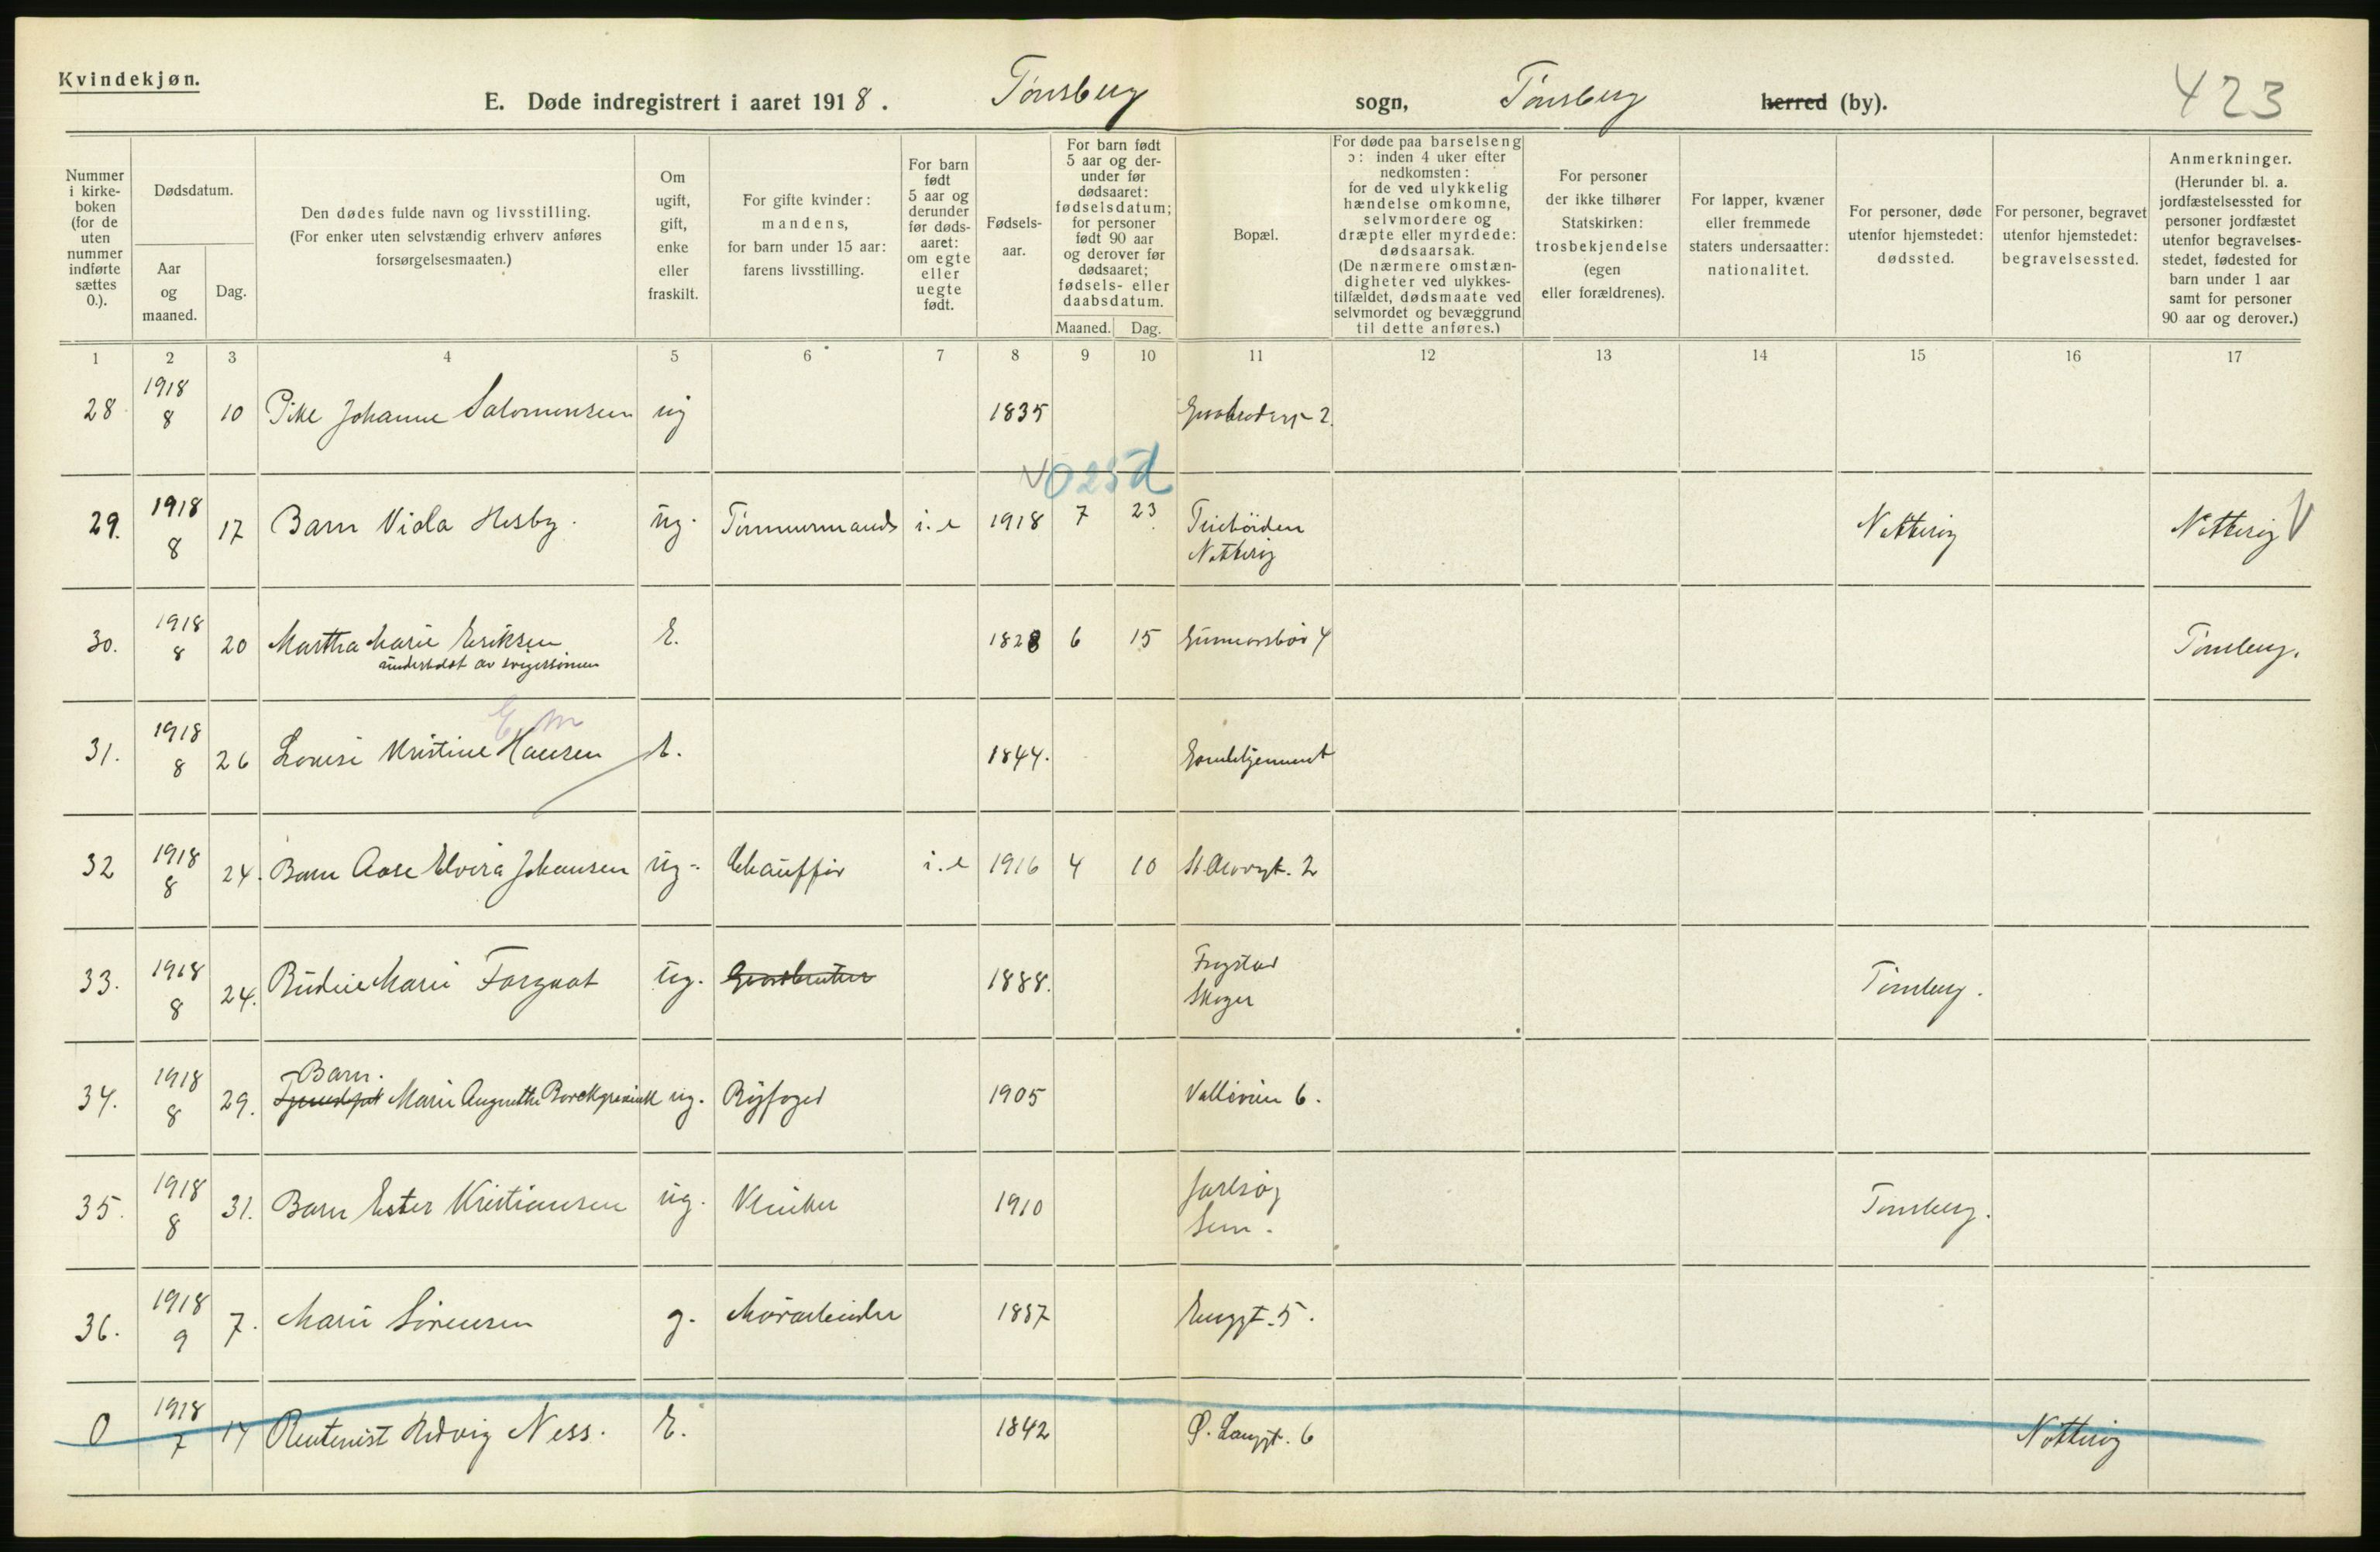 Kvindekjøn.
E. Døde indregistrert i aaret 1918. Tønsberg sogn, Tønsberg herred (by). 423
Nummer i kirke-boken (for de uten nummer indførte sættes 0.).
Dødsdatum.
Aar og maaned.
Dag.
Den dødes fulde navn og livsstilling.
(For enker uten selvstændig erhverv anføres forsørgelsesmaaten.)
Om ugift, gift, enke eller fraskilt.
For gifte kvinder: mandens, for barn under 15 aar: farens livsstilling.
For barn født 5 aar og derunder før døds-aaret: om egte eller uegte født.
Fødsels-aar.
For barn født 5 aar og der-under før dødsaaret: fødselsdatum; for personer født 90 aar og derover før dødsaaret; fødsels- eller daabsdatum.
Maaned. Dag.
Bopæl.
For døde paa barselseng ɔ: inden 4 uker efter nedkomsten: for de ved ulykkelig hændelse omkomne, selvmordere og dræpte eller myrdede: dødsaarsak. (De nærmere omstæn-digheter ved ulykkes-tilfældet, dødsmaate ved selvmordet og bevæggrund til dette anføres.)
For personer der ikke tilhører Statskirken: trosbekjendelse (egen eller forældrenes).
For lapper, kvæner eller fremmede staters undersaatter: nationalitet.
For personer, døde utenfor hjemstedet: dødssted.
For personer, begravet utenfor hjemstedet: begravelsessted.
Anmerkninger. (Herunder bl. a. jordfæstelsessted for personer jordfæstet utenfor begravelses-stedet, fødested for barn under 1 aar samt for personer 90 aar og derover.)
1 2 3 4 5 6 7 8 9 10 11 12 13 14 15 16 17
28 1918 8 10 Pike Johanne Salomonsen ug 1835 2.
025 d
29. 1918 8 17 Barn Viola Hesby. ug. Tømmermands i. e 1918 7 23 Nøtterøy Nøtterøy Nøtterøy V
30. 1918 8 20 Martha Marie Eriksen E. 1828 6 15 Gunnarsbø 4 Tønsberg.
underholdt av svigersønnen
E. m
31. 1918 8 26 Lovise Kristine Hansen E. 1844. Gamlehjemmet
32 1918 8 24. Barn Aase Elvira Johansen ug. Chauffør i. e 1916 4 10 St. Olavsgt. 2
33. 1918 8 24. Marie Forgaat ug. Gaardbruker 1888. Skoger Tønsberg.
Barn.
34. 1918 8 29. Marie Augusthe ug. Byfoged 1905 Valløvein 6.
35. 1918 8 31. Barn Ester Kristiansen ug. 1910 Jarlsøy Sem. Tønsberg.
36. 1918 9 7. Marie Sørensen g. Murarbeider 1857 Enggt. 5.
0 1918 7 14 Rentenist Hedvig Ness. E. 1842 Ø. Langgt. 6 Nøtterøy